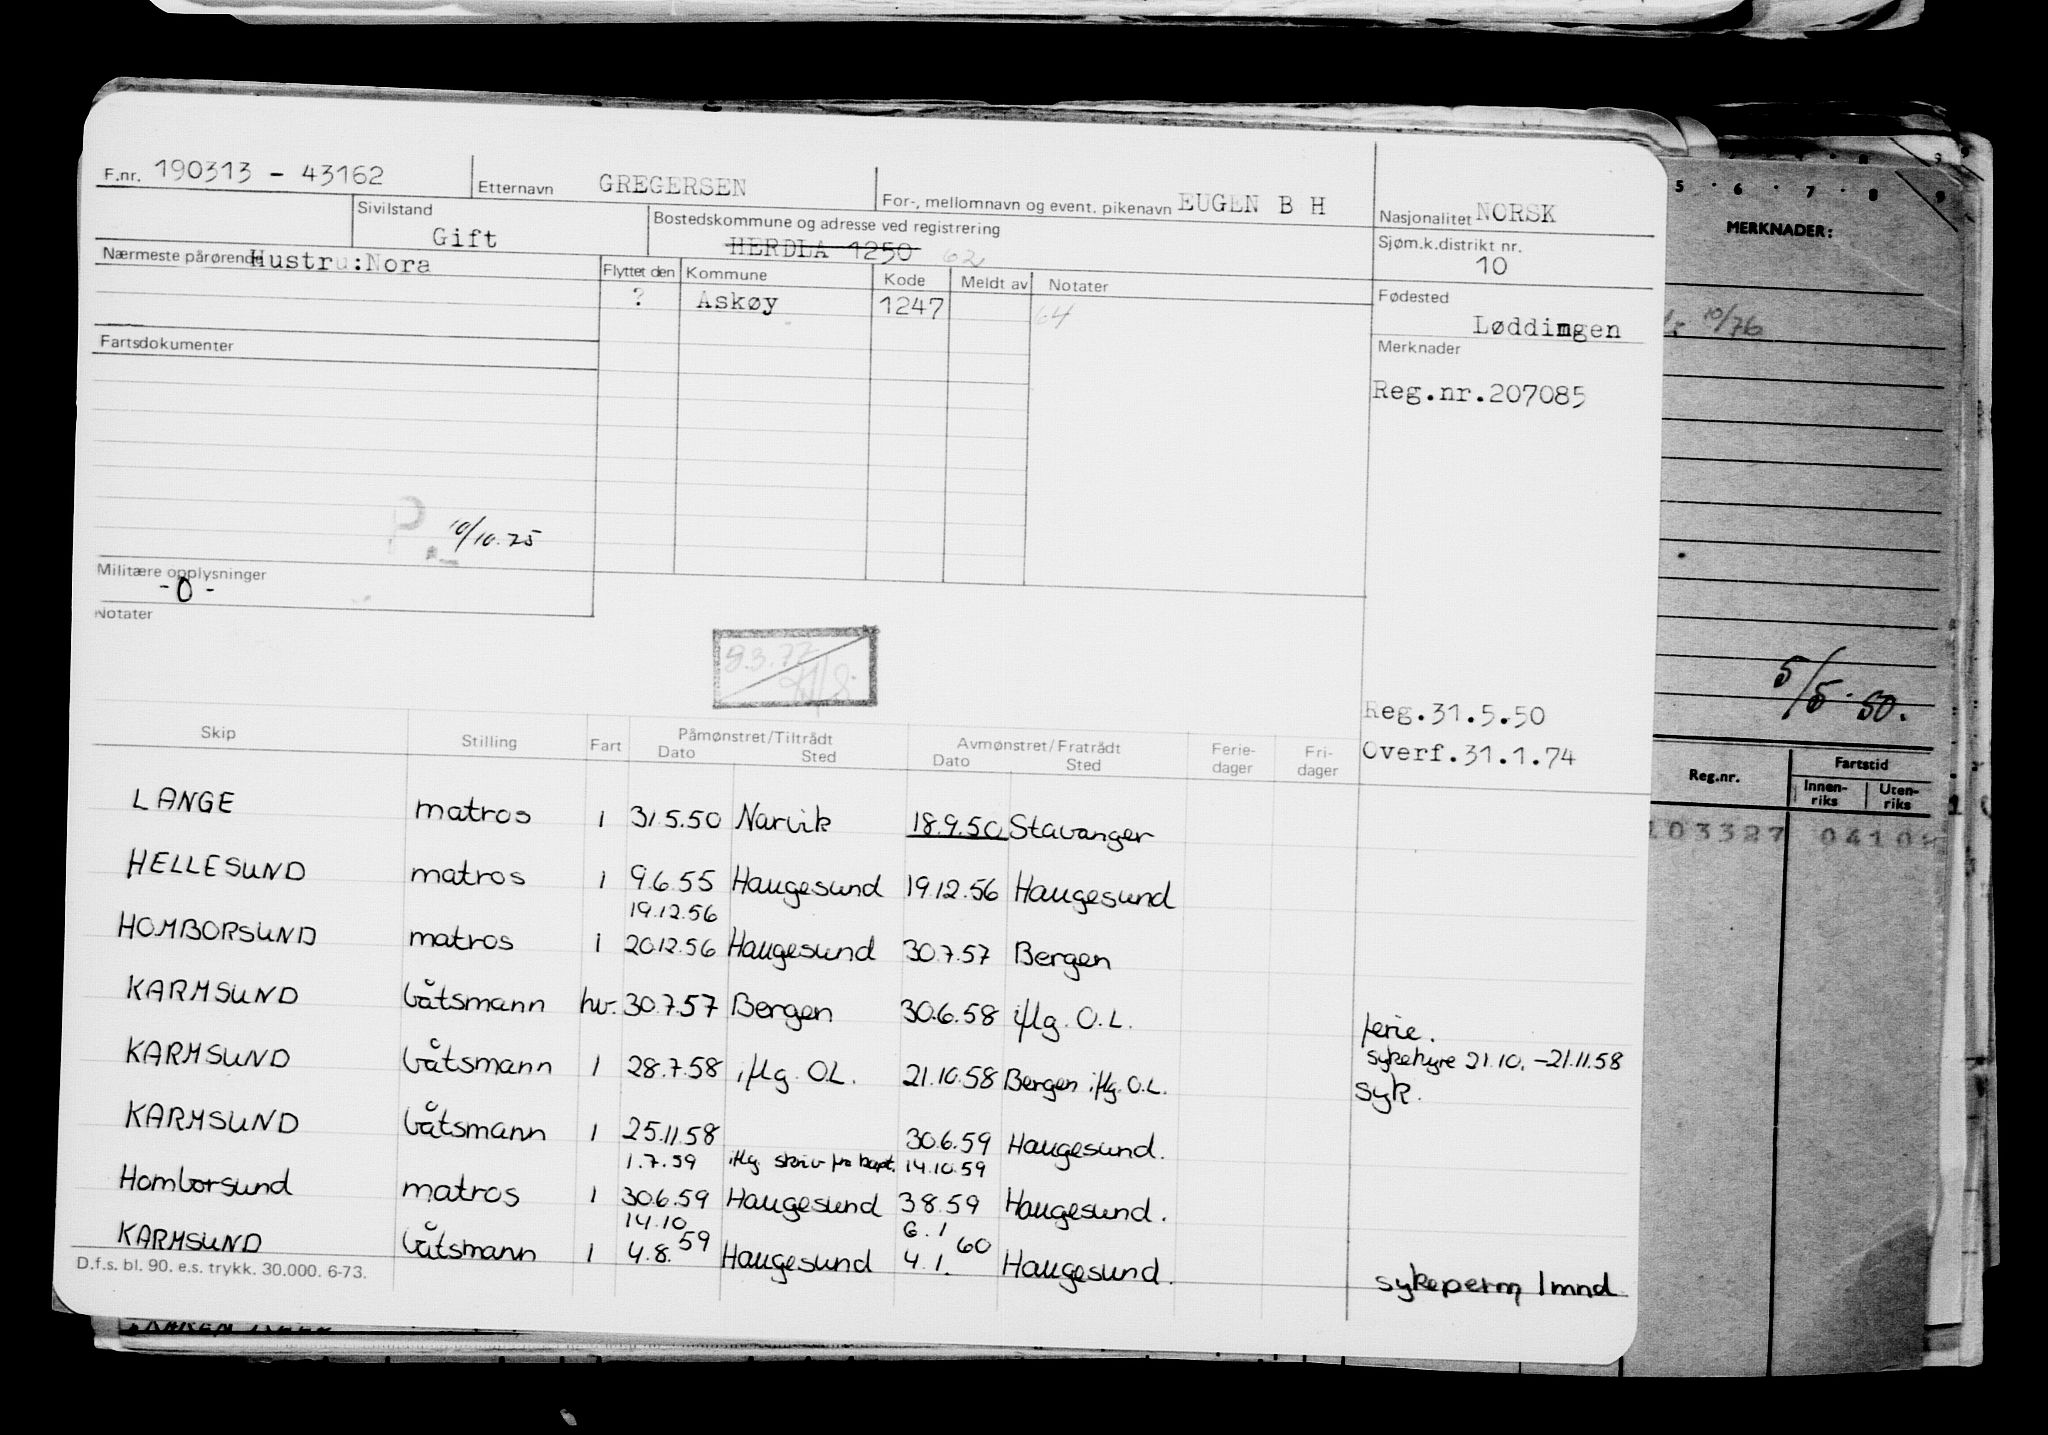 F.nr. 190313 - 43162 Etternavn GREGERSEN For-, mellomnavn og event. pikenavn EUGEN B H Nasjonalitet NORSK
Sivilstand Gift Bostedskommune og adresse ved registrering HERDLA 1250 62 Sjøm.k.distrikt nr. 10
Nærmeste pårørende Hustru:Nora Flyttet den Kommune Kode Meldt av Notater Fødested
? Askøy 1247 64 Løddimgen
Fartsdokumenter Merknader
Reg.nr.207085
P. 10/10.75
Militære opplysninger
-0-
Notater
Reg.31.5.50
Overf.31.1.74
Skip Stilling Fart Påmønstret/Tiltrådt Avmønstret/Fratrådt Ferie- Fri-
Dato Sted Dato Sted dager dager
LANGE matros 1 31.5.50 Narvik 18.9.50 Stavanger
HELLESUND matros 1 9.6.55 Haugesund 19.12.56 Haugesund
19.12.56
HOMBORSUND matros i 20.12.56 Haugesund 30.7.57 Bergen
KARMSUND båtsmann hv. 30.7.57 Bergen 30.6.58 iflg. O.L. ferie.
sykehyre 21.10. - 21.11.58
KARMSUND båtsmann 1 28.7.58 iflg. O.L. 21.10.58 Bergen iflg. O.L. syk.
KARMSUND båtsmann 1 25.11.58 30.6.59 Haugesund.
1.7.59 iflg skriv fra kapt. 14.10.59
Homborsund matros 1 30.6.59 Haugesund 3.8.59 Haugesund.
14.10 6.1
KARMSUND båtsmann 1 4.8.59 Haugesund 4.1.60 Haugesund. sykeperm 1 mnd
D.f.s. bl. 90. e.s. trykk. 30.000. 6-73.
5 · 6 · 7 · 8 9
MERKNADER:
10/76
5/5.50.
Reg.nr. Fartstid
Innen-riks Uten-riks
103327 0410